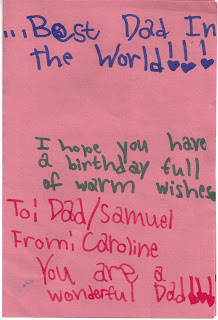 ...Best Dad In
the World!!!
I hope you have
a birthday full
of warm wishes
To: Dad/Samuel
From: Caroline
You are a
wonderful Dad!!!!